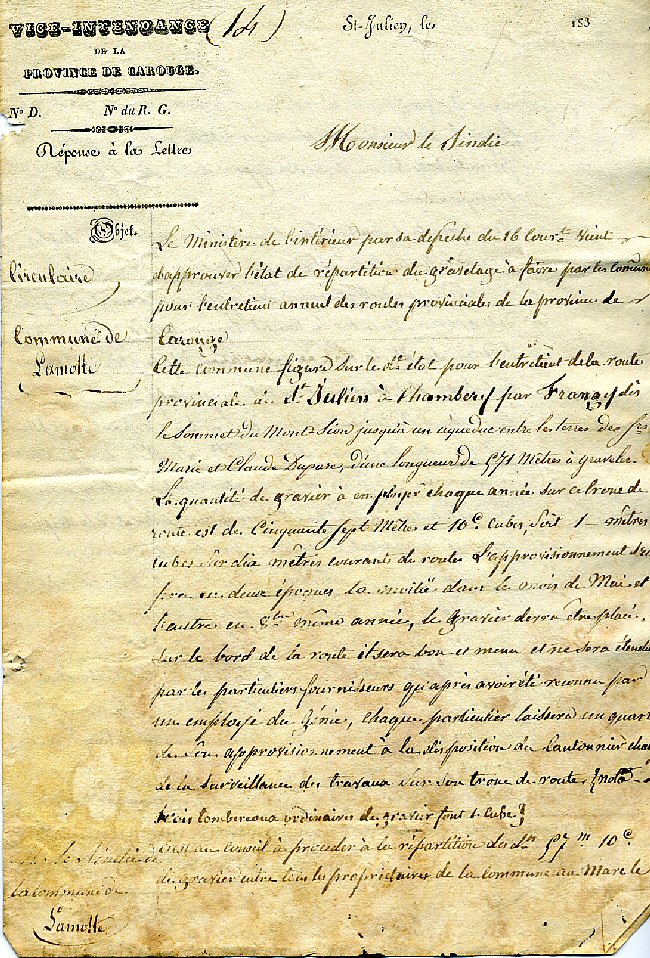 VICE-INTENDANCE (14)
DE LA
PROVINCE DE CAROUGE.
N.º D. N.º du R. G.
Réponse à la Lettre
St-Julien, le 183
Monsieur le Sindic
Objet.
Circulaire
Commune de
Lamotte
Le Ministère de l'intérieur par sa dépêche du 16 Court. vient
d'approuver l'état de répartition du gravelage à faire par les comunes
pour l'entretient annuel des routes provinciales de la province de
Carouge
Cette commune figure sur le dt. état pour l'entretient de la route
provinciale de St. Julien à Chambery par Frangy dès
le Sommet du Mont Sion jusqu'à un aqueduc entre les terres des frs
Marie et Claude d'une longueur de 571 Mètres à graveler.
La quantité de gravier à employer chaque année sur ce tronc de
route est de Cinquante sept Mètres et 10 c. cubes, soit 1 mètres
cubes sur dix mètres courants de routes L'approvisionnement s'en
fera en deux époques la moitié dans le mois de Mai et
l'autre en 8bre même année, le gravier devra être placé
sur le bord de la route il sera bon et menu et ne sera étendu
par les particuliers fournisseurs qu'après avoir été reconnu par
un employé du Génie, chaque particulier laissera un quart
de son approvisionnement à la disposition du Cantonnier
de la surveillance des travaux sur son tronc de route (nota
trois tombereaux ordinaires de gravier font 1. cube)
au conseil à procéder à la répartition des dits 57 m 10 c.
de gravier entre tous les propriétaires de la commune au Marc le
la commune de
Lamotte